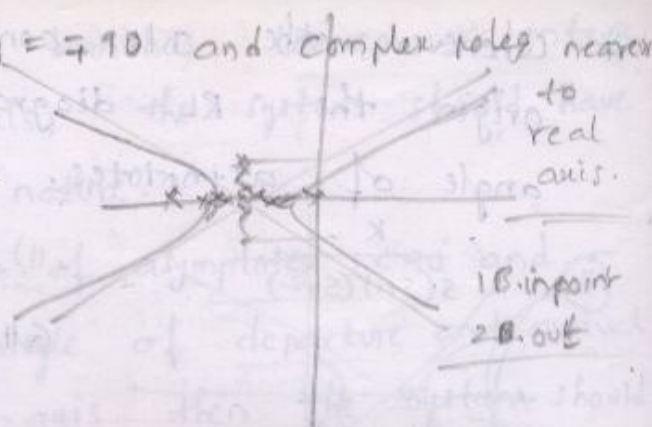 = ∓90 and complex poles nearer
to
real
axis.
1 B.inpoint
2 B.out